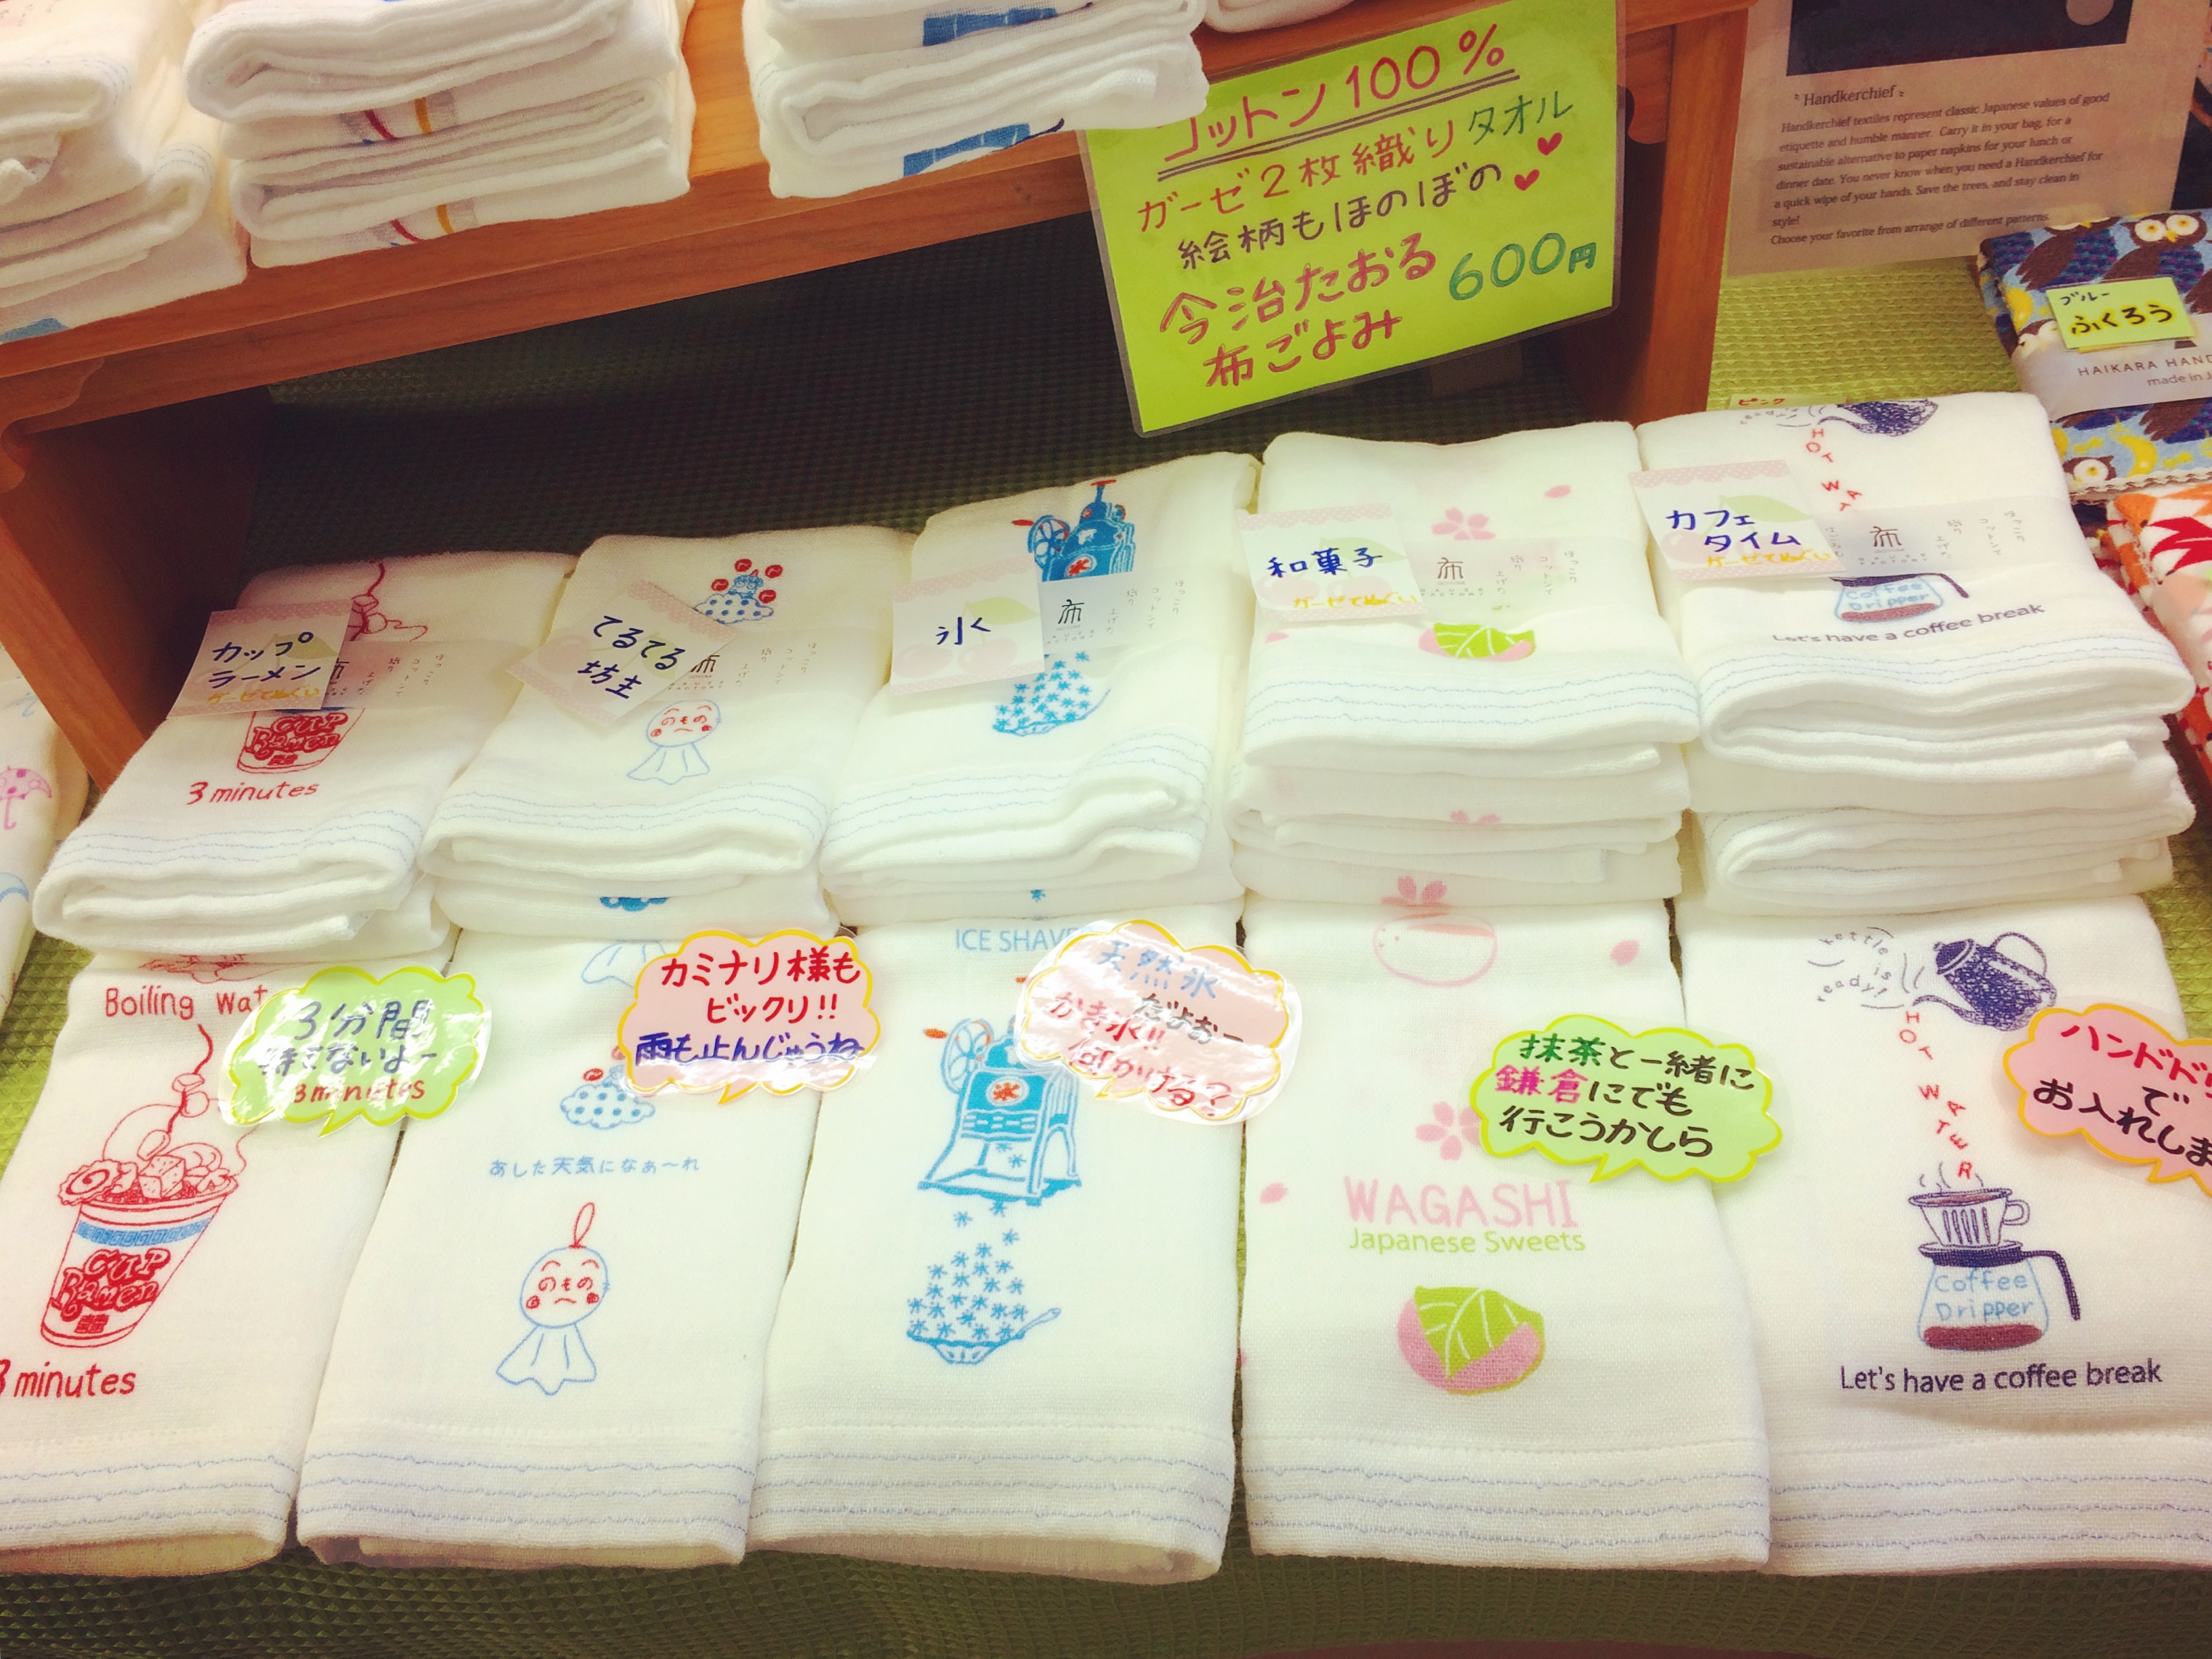 コットン100%
ガーゼ2枚織りタオル
絵柄もほのぼの
今治たおる
布ごよみ
600円
Handkerchief
Handkerchief textiles represent classic Japanese values of good
etiquette and humble manner. Carry it in your bag, for a
sustainable alternative to paper napkins for your lunch or
dinner date. You never know when you need a Handkerchief for
a quick wipe of your hands. Save the trees, and stay clean in
style!
Choose your favorite from arrange of different patterns.
ブルー
ふくろう
HAIKARA HAND
made in J
ピンク
カップ
ラーメン
ガーゼてぬぐい
CUP
Ramen
3 minutes
てるてる
坊主
布
のもの
氷
布
和菓子
ガーゼてぬぐい
布
HOT WAT
カフェ
タイム
ガーゼてぬぐい
布
Coffee
Dripper
Let's have a coffee break
Boiling wat
3分間
待てないよー
3 minutes
CUP
Ramen
3 minutes
カミナリ様も
ビックリ!!
雨も止んじゅうね
あした天気になぁ〜れ
のもの
ICE SHAVE
天然氷
だよぉー
かき氷!!
何かける?
氷
抹茶と一緒に
鎌倉にでも
行こうかしら
WAGASHI
Japanese Sweets
kettle
is
ready!
HOT WATER
ハンドド
で
お入れしま
Coffee
Dripper
Let's have a coffee break